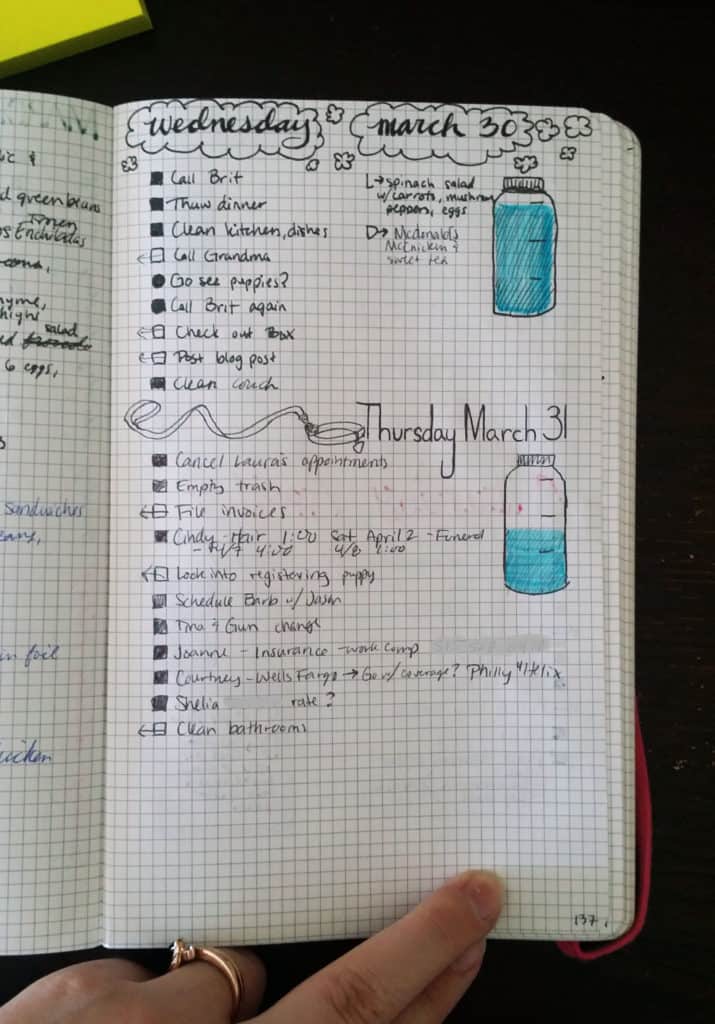 ic &
d green beans
Enchiladas
hyme,
salad
6 eggs,
Sandwiches
eans,
in foil
chicken
wednesday march 30
Call Brit
Thaw dinner
Clean kitchen, dishes
Call Grandma
Go see puppies?
Call Brit again
Check out Box
Post blog post
Clean couch
L → spinach salad
w/ carrots, mushroom
peppers, eggs
D → Mcdonald's
McChicken &
sweet tea
Thursday March 31
Cancel Laura's appointments
Empty trash
File invoices
Cindy - Hair 1:00 Sat April 2 - Funeral
4/7 4:00 4/8 1:00
Look into registering puppy
Schedule Barb w/ Jason
Tina & Gun change
Joanne - Insurance - work comp
Courtney - Wells Fargo → Go w/ coverage? Philly
Shelia rate?
Clean bathrooms
137